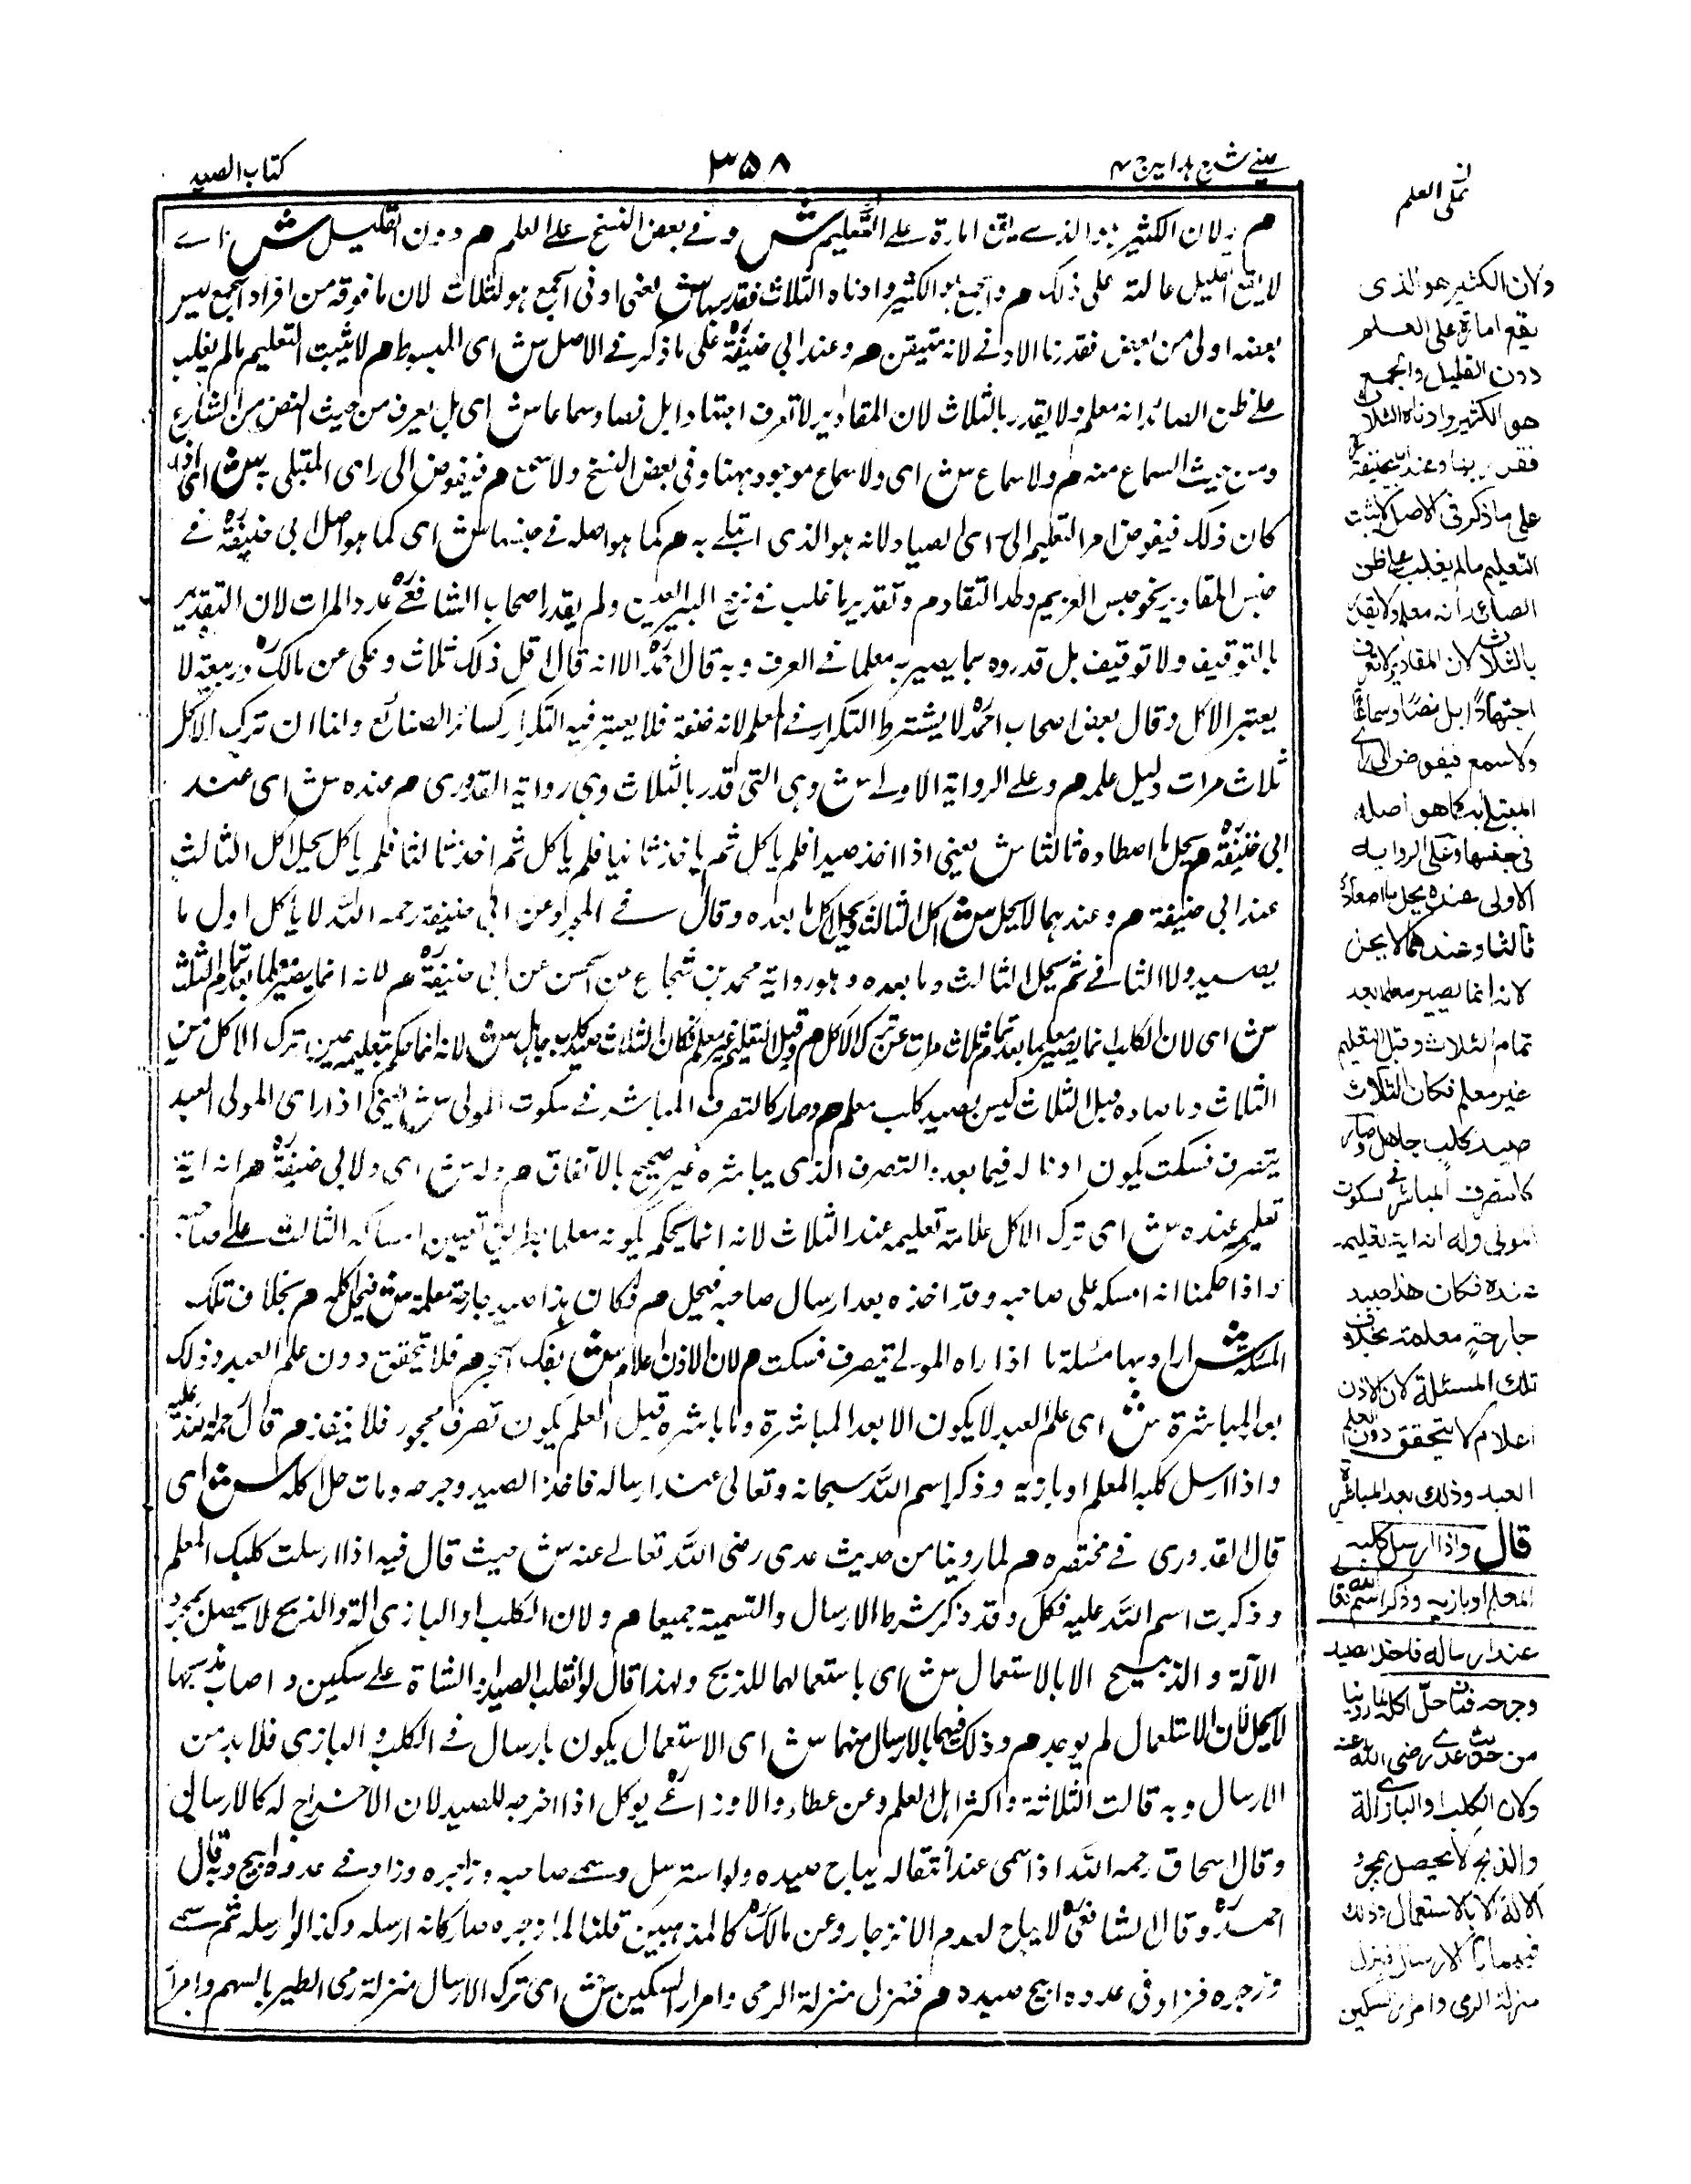 كتاب الصيد
٣٥٨
عينى شرح هدايه ج ٤
م ولان الكثير هو الذى يقع امارة على التعليم ش وفى بعض النسخ على العلم م دون القليل ش اى
لا يقع القليل علامة على ذلك م والجمع هو الكثير وادناه الثلاث فقدر بها ش يعنى ادنى الجمع هو الثلاث لان ما فوقه من افراد الجمع ليس
بعضه اولى من بعض فقدرنا الادنى لانه متيقن م وعند ابى حنيفةؒ على ما ذكر فى الاصل ش اى المبسوط م لا يثبت التعليم ما لم يغلب
على ظن الصائد انه معلم ولا يقدر بالثلاث لان المقادير لا تعرف اجتهادا بل نصا وسماعا ش اى بل يعرف من حيث النص من الشارع
ومن حيث السماع منه م ولا سماع ش اى ولا سماع موجود ههنا وفى بعض النسخ ولا سمع م فيفوض الى راى المبتلى به ش اى اذا
كان ذلك فيفوض امر التعليم الى راى الصياد لانه هو الذى ابتلى به م كما هو اصله فى جنسها ش اى كما هو اصل ابى حنيفةؒ فى
جنس المقادير نحو حبس الغريم وحد التقادم وتقدير ما غلب فى نزح البير المعين ولم يقدر اصحاب الشافعىؒ عدد المرات لان التقدير
بالتوقيف ولا توقيف بل قدروه بما يصير به معلما فى العرف وبه قال احمدؒ الا انه قال اقل ذلك ثلاث وحكى عن مالكؒ وربيعة لا
يعتبر الاكل وقال بعض اصحاب احمدؒ لا يشترط التكرار فى المعلم لانه صنعة فلا يعتبر فيه التكرار كسائر الصنائع ولنا ان ترك الاكل
ثلاث مرات دليل علمه م وعلى الرواية الاولى ش وهى التى قدر بالثلاث وهى رواية القدورى م عنده ش اى عند
ابى حنيفةؒ م يحل ما اصطاده ثالثا ش يعنى اذا اخذ صيدا فلم ياكل ثم ياخذ ثانيا فلم ياكل ثم اخذ ثالثا فلم ياكل يحل اكل الثالث
عند ابى حنيفة م وعندهما لا يحل ش اكل الثالث ويحل اكل ما بعده وقال فى المجرد وعن ابى حنيفة رحمه الله لا ياكل اول ما
يصيد ولا الثانى ثم يحل الثالث وما بعده وهو رواية محمد بن شجاع عن الحسن عن ابى حنيفةؒ م لانه انما يصير معلما بعد تمام الثلاث
ش اى لان الكلب انما يصير معلما بعد تمام ثلاث مرات عن ترك الاكل م وقبل التعليم غير معلم فكان الثالث صيد كلب جاهل ش لانه انما حكم بتعليمه حين ترك الاكل من
الثلاث وما صاده قبل الثلاث ليس بصيد كلب معلم م وصار كالتصرف المباشر فى سكوت المولى ش يعنى اذا راى المولى العبد
يتصرف فسكت يكون اذنا له فيما بعد التصرف الذى يباشره غير صحيح بالاتفاق م وله ش اى ولابى حنيفةؒ م انه اية
تعليمه عنده ش اى ترك الاكل علامة تعليمه عند الثلاث لانه انما يحكم بكونه معلما بطريق تعيين امساكه الثالث على صاحبه
واذا حكمنا انه امسكه على صاحبه وقد اخذه بعد ارسال صاحبه فيحل م فكان هذا صيد جارحة معلمة ش فيحل اكله م بخلاف تلك
المسئلة ش اراد بها مسئلة ما اذا راه المولى يتصرف فسكت م لان الاذن اعلام ش بفك الحجر م فلا يتحقق دون علم العبد وذلك
بعد المباشرة ش اى علم العبد لا يكون الا بعد المباشرة وما باشره قبل العلم يكون تصرف محجور فلا ينفذ م قال رحمة الله عليه
واذا ارسل كلبه المعلم او بازيه وذكر اسم الله سبحانه وتعالى عند ارساله فاخذ الصيد وجرحه ومات حل اكله ش اى
قال القدورى فى مختصره م لما روينا من حديث عدى رضى الله تعالى عنه ش حيث قال فيه اذا ارسلت كلبك المعلم
وذكرت اسم الله عليه فكل وقد ذكر شرط الارسال والتسمية جميعا م ولان الكلب او البازى الة والذبح لا يحصل بمجرد
الآلة والذبح الا بالاستعمال ش اى باستعمالهما للذبح ولهذا قال لو انقلب الصيد او الشاة على سكين واصاب مذبحها
لا يحل لان الاستعمال لم يوجد م وذلك فيهما بالارسال منهما ش اى الاستعمال يكون بارسال فى الكلب والبازى فلا بد من
الارسال وبه قالت الثلاثة واكثر اهل العلم وعن عطاء والاوزاعىؒ يوكل اذا اخرجه للصيد لان الاخراج له كالارسال
وقال اسحاق رحمه الله اذا سمى عند انتقاله يباح صيده ولو استرسل وسمى صاحبه وزجره وزاد فى عدوه ابيح وبه قال
احمدؒ وقال الشافعىؒ لا يباح لعدم الانزجار وعن مالكؒ كالمذهبين قلنا لما زجره صار كانه ارسله وكذا لو ارسله ثم سمى
وزجره فزاد فى عدوه ابيح صيده م فنزل منزلة الرمى وامرار السكين ش اى ترك الارسال منزلة رمى الطير بالسهم وامرار
على العلم
ولان الكثير هو الذى
يقع امارة على العلم
دون القليل والجمع
هو الكثير وادناه الثلاث
فقدر بها وعند ابى حنيفةؒ
على ما ذكر فى الاصل لا يثبت
التعليم ما لم يغلب على ظن
الصائد انه معلم ولا يقدر
بالثلاث لان المقادير لا تعرف
اجتهادًا بل نصًا وسماعًا
ولا سمع فيفوض الى راى
المبتلى به كما هو اصله
فى جنسها وعلى الرواية
الاولى عنده يحل ما اصطاده
ثالثا وعندهما لا يحل
لانه انما يصير معلما بعد
تمام الثلاث وقبل التعليم
غير معلم فكان الثالث
صيد كلب جاهل وصار
كالتصرف المباشر فى سكوت
المولى وله انه اية تعليمه
عنده فكان هذا صيد
جارحةٍ معلمة بخلاف
تلك المسئلة لان الاذن
اعلام لا يتحقق دون العلم
العبد وذلك بعد المباشرة
قال واذا ارسل كلبه
المعلم او بازيه وذكر اسم الله تعا
عند ارساله فاخذ الصيد
وجرحه فمات حلّ اكله لما روينا
من حديث عدى رضى الله عنه
ولان الكلب والبازى الة
والذبح لا يحصل بمجرد
الالة الا بالاستعمال وذلك
فيهما بالارسال فنزل
منزلة الرمى وامرار السكين